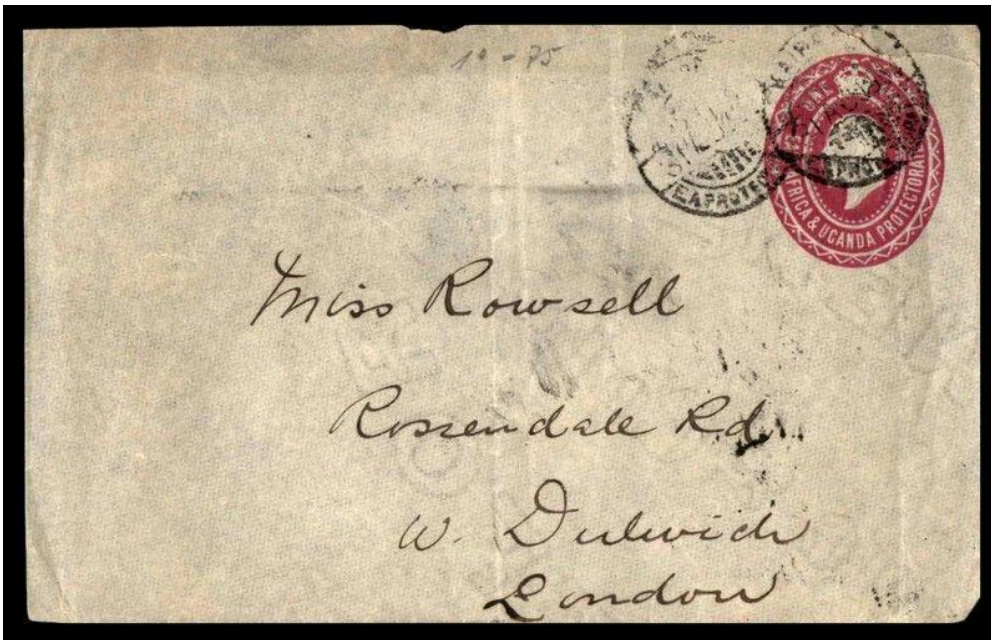 10-75
ONE
AFRICA & UGANDA PROTECTORATE
Miss Rowsell
Rossendale Rd.
W. Dulwich
London